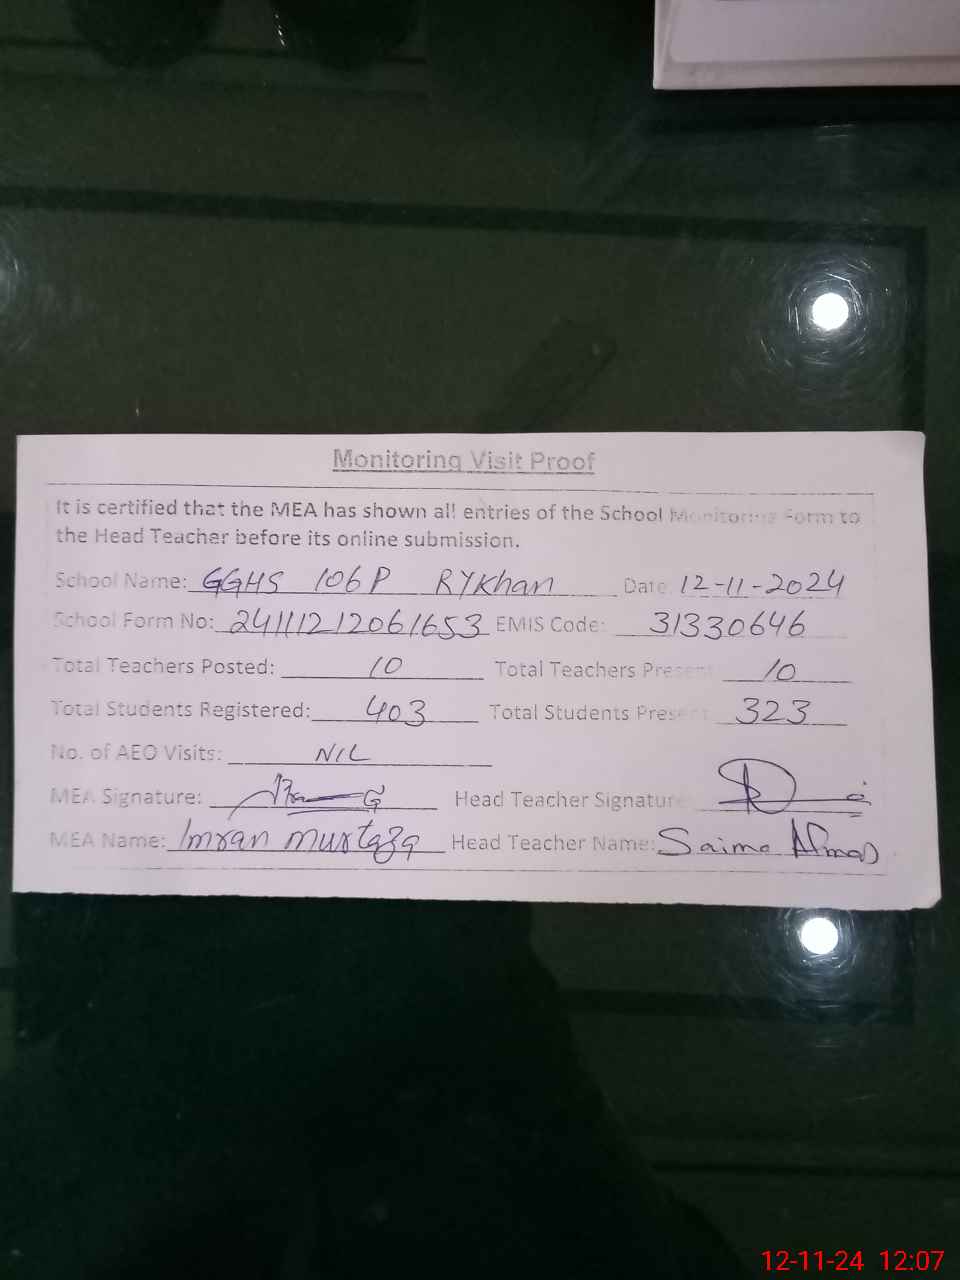 Monitoring Visit Proof
It is certified that the MEA has shown all entries of the School Monitoring Form to
the Head Teacher before its online submission.
School Name: GGHS 106P RYKhan Date: 12-11-2024
School Form No: 24111212061653 EMIS Code: 31330646
Total Teachers Posted: 10 Total Teachers Present: 10
Total Students Registered: 403 Total Students Present: 323
No. of AEO Visits: NIL
MEA Signature: Head Teacher Signature:
MEA Name: Imran murtaza Head Teacher Name: Saima
12-11-24 12:07